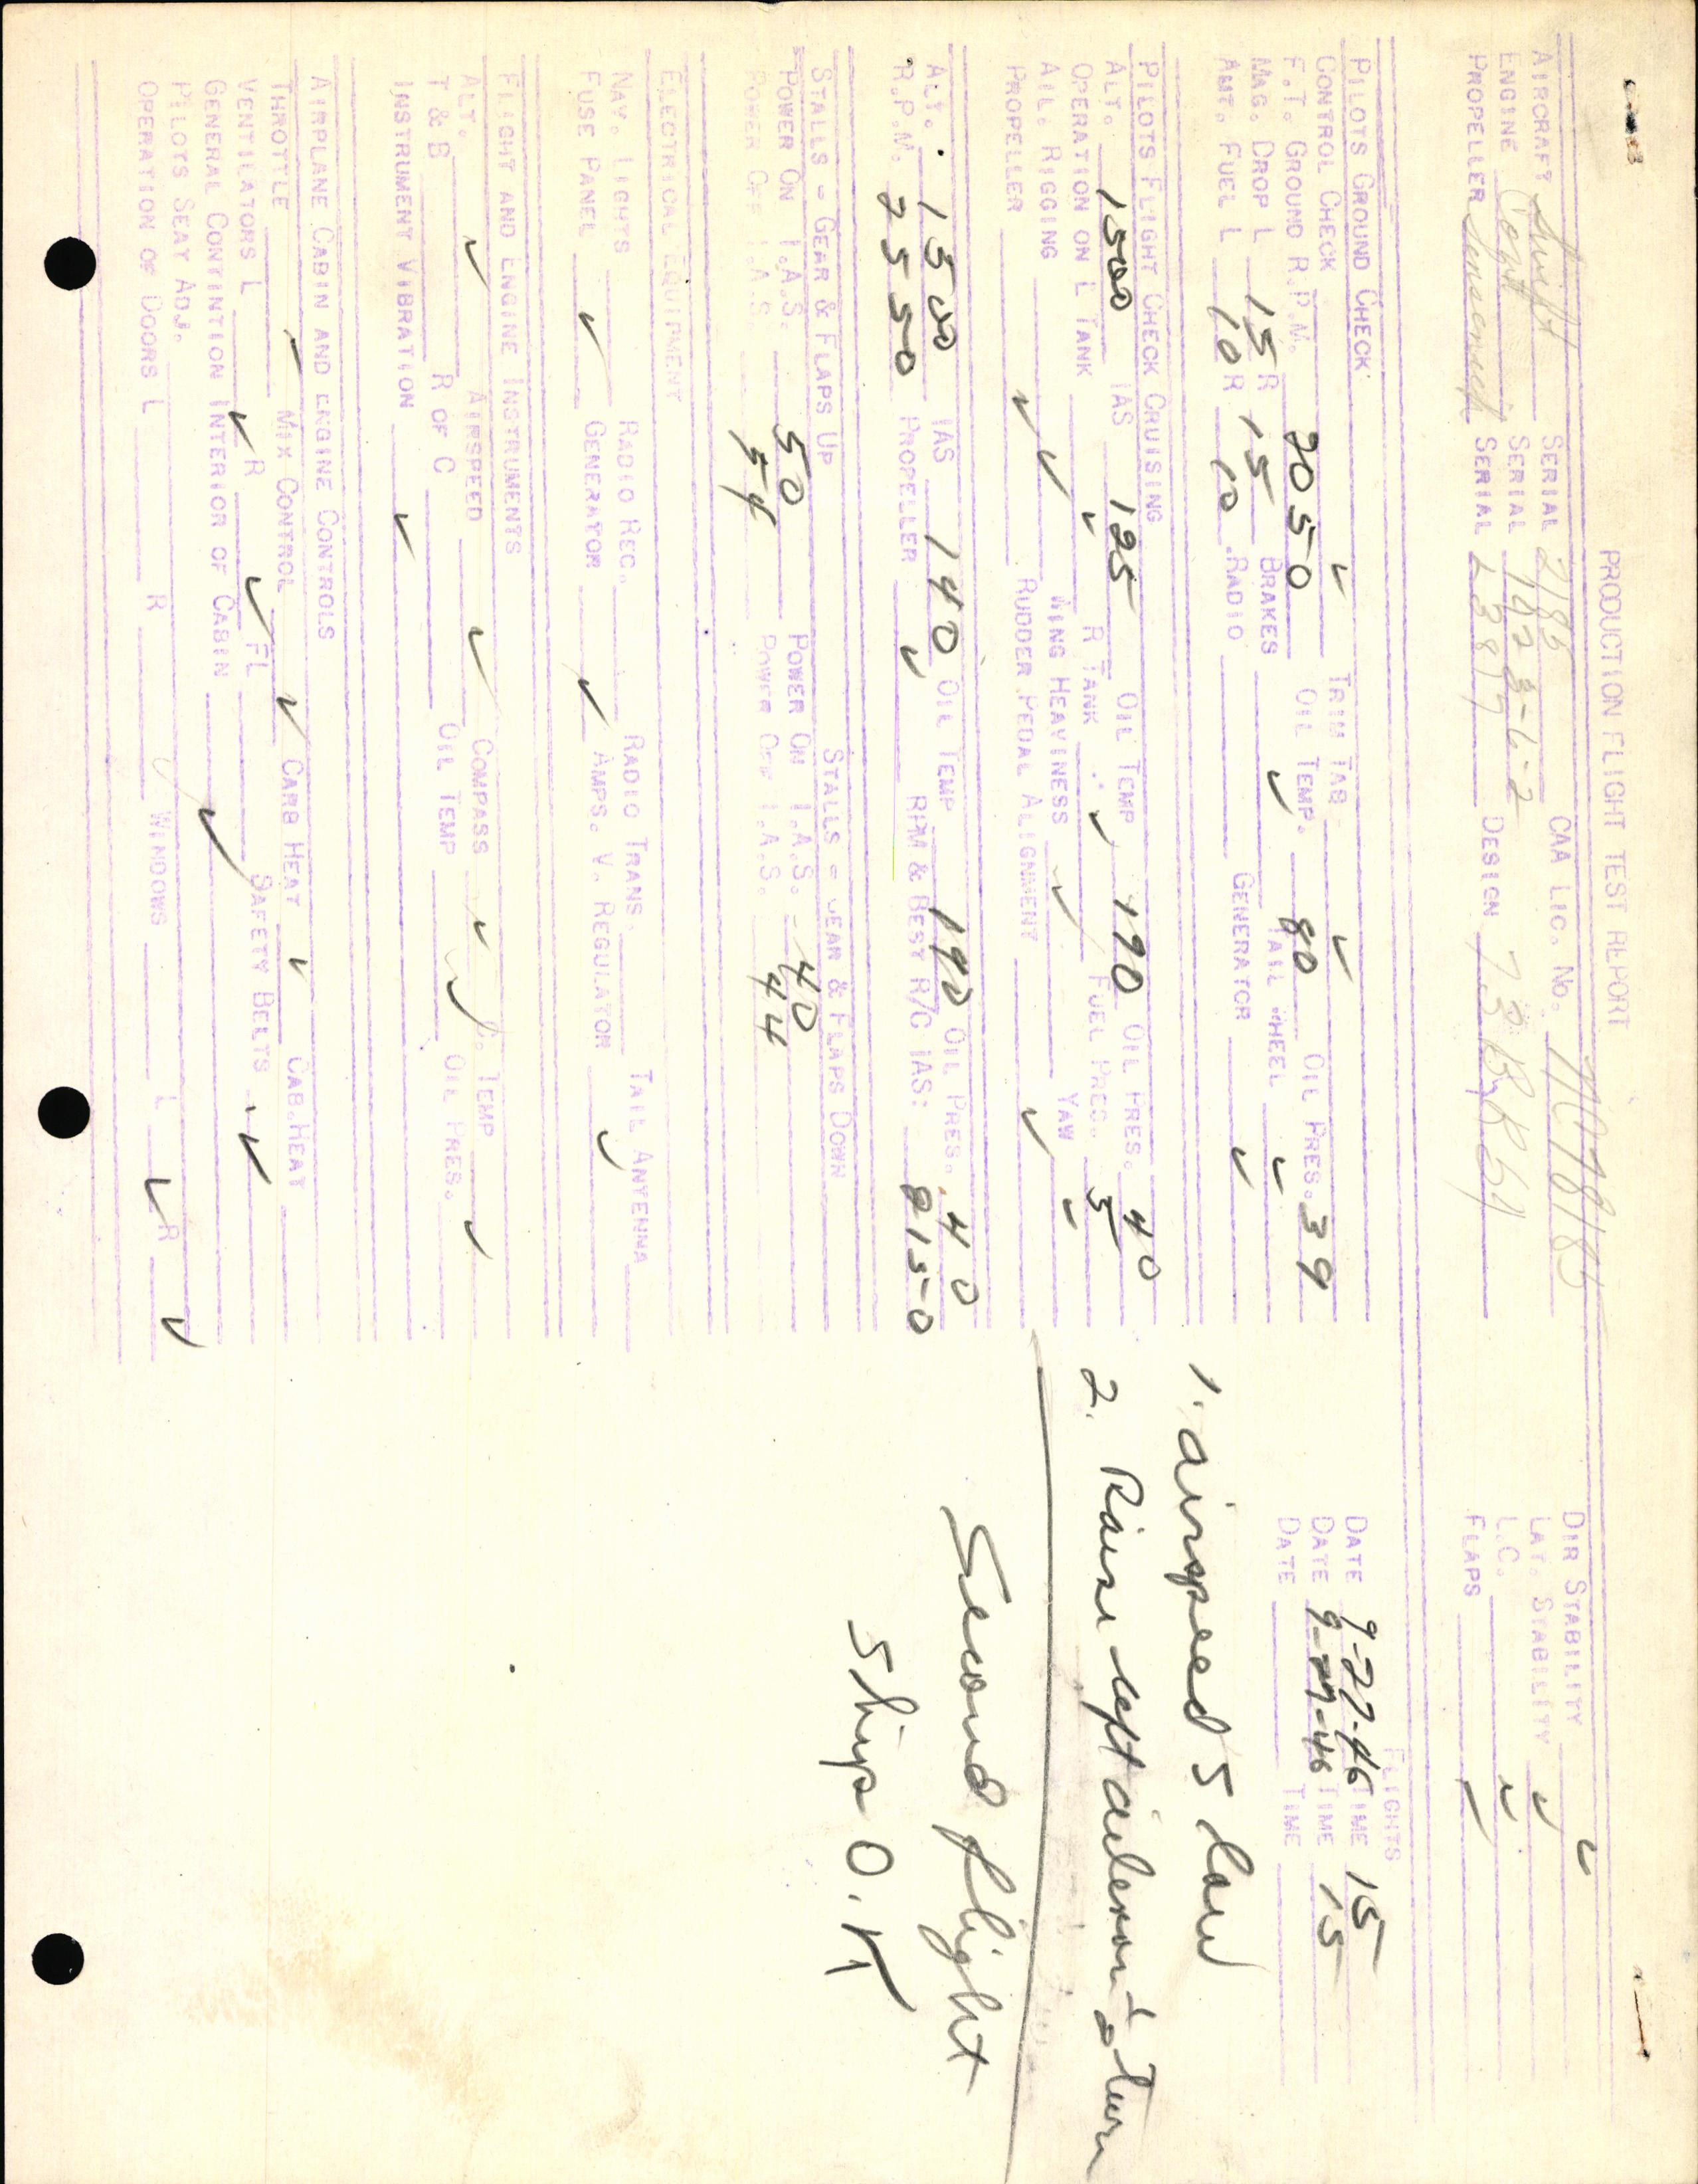 PRODUCTION FLIGHT TEST REPORT
AIRCRAFT Swift SERIAL 2185 CAA LIC. NO. DIR STABILITY ✓
ENGINE Cont SERIAL LAT. STABILITY ✓
L.C. ✓
PROPELLER Sensenich SERIAL DESIGN FLAPS ✓
FLIGHTS
PILOTS GROUND CHECK DATE 9-27-46 TIME 15
CONTROL CHECK ✓ TRIM TAB ✓ DATE 9-27-46 TIME 15
F.T. GROUND R.P.M. 2050 OIL TEMP. 80 OIL PRES. 39 DATE TIME
MAG. DROP L 15 R 15 BRAKES ✓ TAIL WHEEL ✓
AMT. FUEL L 10 R 10 RADIO GENERATOR ✓
1. airspeed 5 low
PILOTS FLIGHT CHECK CRUISING
ALT. 1500 IAS 125 OIL TEMP 190 OIL PRES. 40
OPERATION ON L TANK ✓ R TANK ✓ FUEL PRES. 5
2. Raise left aileron ½ turn
AIL. RIGGING ✓ WING HEAVINESS ✓ YAW ✓
PROPELLER ✓ RUDDER PEDAL ALIGNMENT ✓
ALT. 1500 IAS 140 OIL TEMP 190 OIL PRES. 40
R.P.M. 2550 PROPELLER ✓ RPM & BEST R/C IAS: 2150
Second flight
Ship O.K
STALLS = GEAR & FLAPS UP STALLS = GEAR & FLAPS DOWN
POWER ON I.A.S. 50 POWER ON I.A.S. 40
POWER OFF I.A.S. 54 POWER OFF I.A.S. 44
ELECTRICAL EQUIPMENT
NAV. LIGHTS RADIO REC. RADIO TRANS. TAIL ANTENNA
FUSE PANEL ✓ GENERATOR ✓ AMPS. V. REGULATOR ✓
FLIGHT AND ENGINE INSTRUMENTS
ALT. ✓ AIRSPEED ✓ COMPASS ✓ C. TEMP ✓
T & B R OF C OIL TEMP OIL PRES.
INSTRUMENT VIBRATION ✓
AIRPLANE CABIN AND ENGINE CONTROLS
THROTTLE ✓ MIX CONTROL ✓ CARB HEAT ✓ CAB. HEAT
VENTILATORS L ✓ R ✓ FL SAFETY BELTS ✓
GENERAL CONTINTION INTERIOR OF CABIN ✓
PILOTS SEAT ADJ.
OPERATION OF DOORS L R WINDOWS L ✓ R ✓